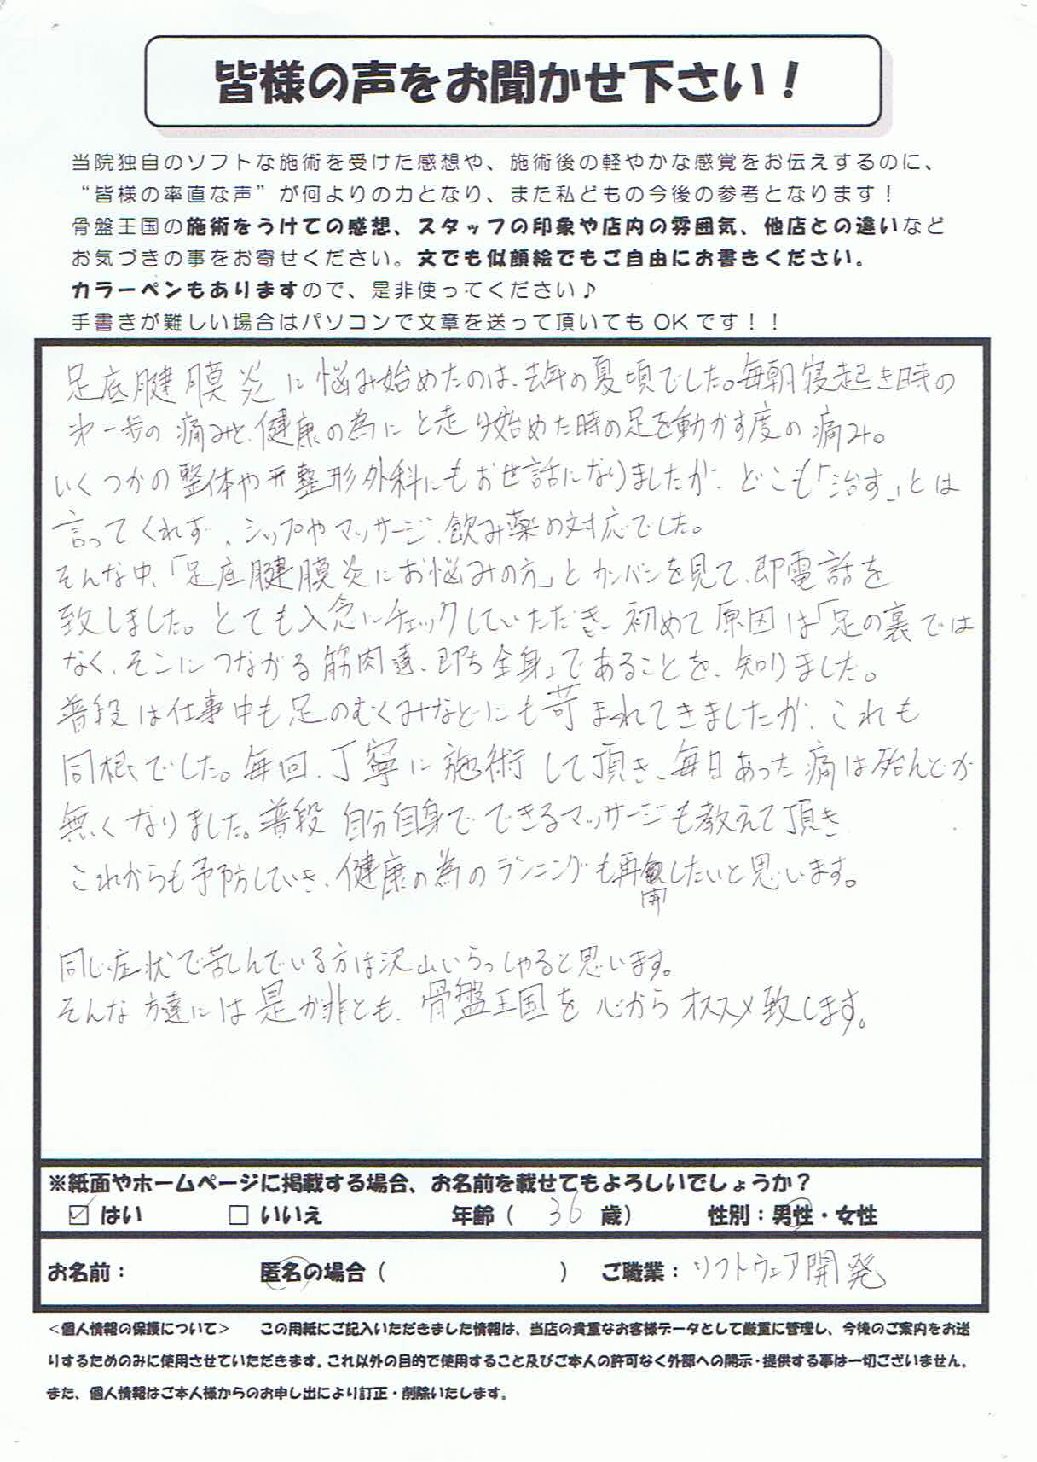 皆様の声をお聞かせ下さい！
当院独自のソフトな施術を受けた感想や、施術後の軽やかな感覚をお伝えするのに、
“皆様の率直な声”が何よりの力となり、また私どもの今後の参考となります！
骨盤王国の施術をうけての感想、スタッフの印象や店内の雰囲気、他店との違いなど
お気づきの事をお寄せください。文でも似顔絵でもご自由にお書きください。
カラーペンもありますので、是非使ってください♪
手書きが難しい場合はパソコンで文章を送って頂いてもOKです！！
足底腱膜炎に悩み始めたのは、去年の夏頃でした。毎朝寝起き時の
第一歩の痛みと、健康の為にと走り始めた時の足を動かす度の痛み。
いくつかの整体や整形外科にもお世話になりましたが、どこも「治す」とは
言ってくれず、シップやマッサージ、飲み薬の対応でした。
そんな中、「足底腱膜炎にお悩みの方」とカンバンを見て、即電話を
致しました。とても入念にチェックしていただき、初めて原因は「足の裏では
なく、そこにつながる筋肉達、即ち全身」であることを、知りました。
普段は仕事中も足のむくみなどにも苛まれてきましたが、これも
同根でした。毎回、丁寧に施術して頂き、毎日あった痛は殆んどが
無くなりました。普段自分自身でできるマッサージも教えて頂き
これからも予防していき、健康の為のランニングも再開したいと思います。
同じ症状で苦しんでいる方は沢山いらっしゃると思います。
そんな方達には是が非とも、骨盤王国を心からオススメ致します。
※紙面やホームページに掲載する場合、お名前を載せてもよろしいでしょうか？
☑ はい □ いいえ 年齢（ 36 歳） 性別：男性・女性
お名前： 匿名の場合（ ） ご職業：ソフトウェア開発
＜個人情報の保護について＞ この用紙にご記入いただきました情報は、当店の貴重なお客様データとして厳重に管理し、今後のご案内をお送
りするためのみに使用させていただきます。これ以外の目的で使用すること及びご本人の許可なく外部への開示・提供する事は一切ございません。
また、個人情報はご本人様からのお申し出により訂正・削除いたします。